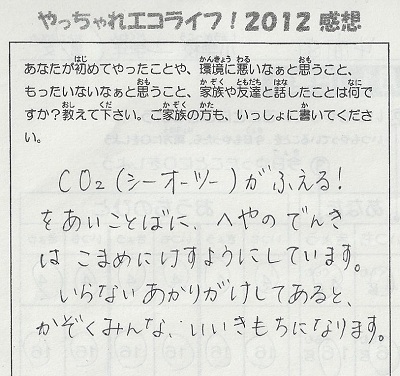 やっちゃれエコライフ！2012 感想
あなたが初めてやったことや、環境に悪いなぁと思うこと、
もったいないなぁと思うこと、家族や友達と話したことは何で
すか？教えて下さい。ご家族の方も、いっしょに書いてくださ
い。
CO₂（シーオーツー）がふえる！
をあいことばに、へやのでんき
は こまめにけすようにしています。
いらないあかりがけしてあると、
かぞくみんな、いいきもちになります。